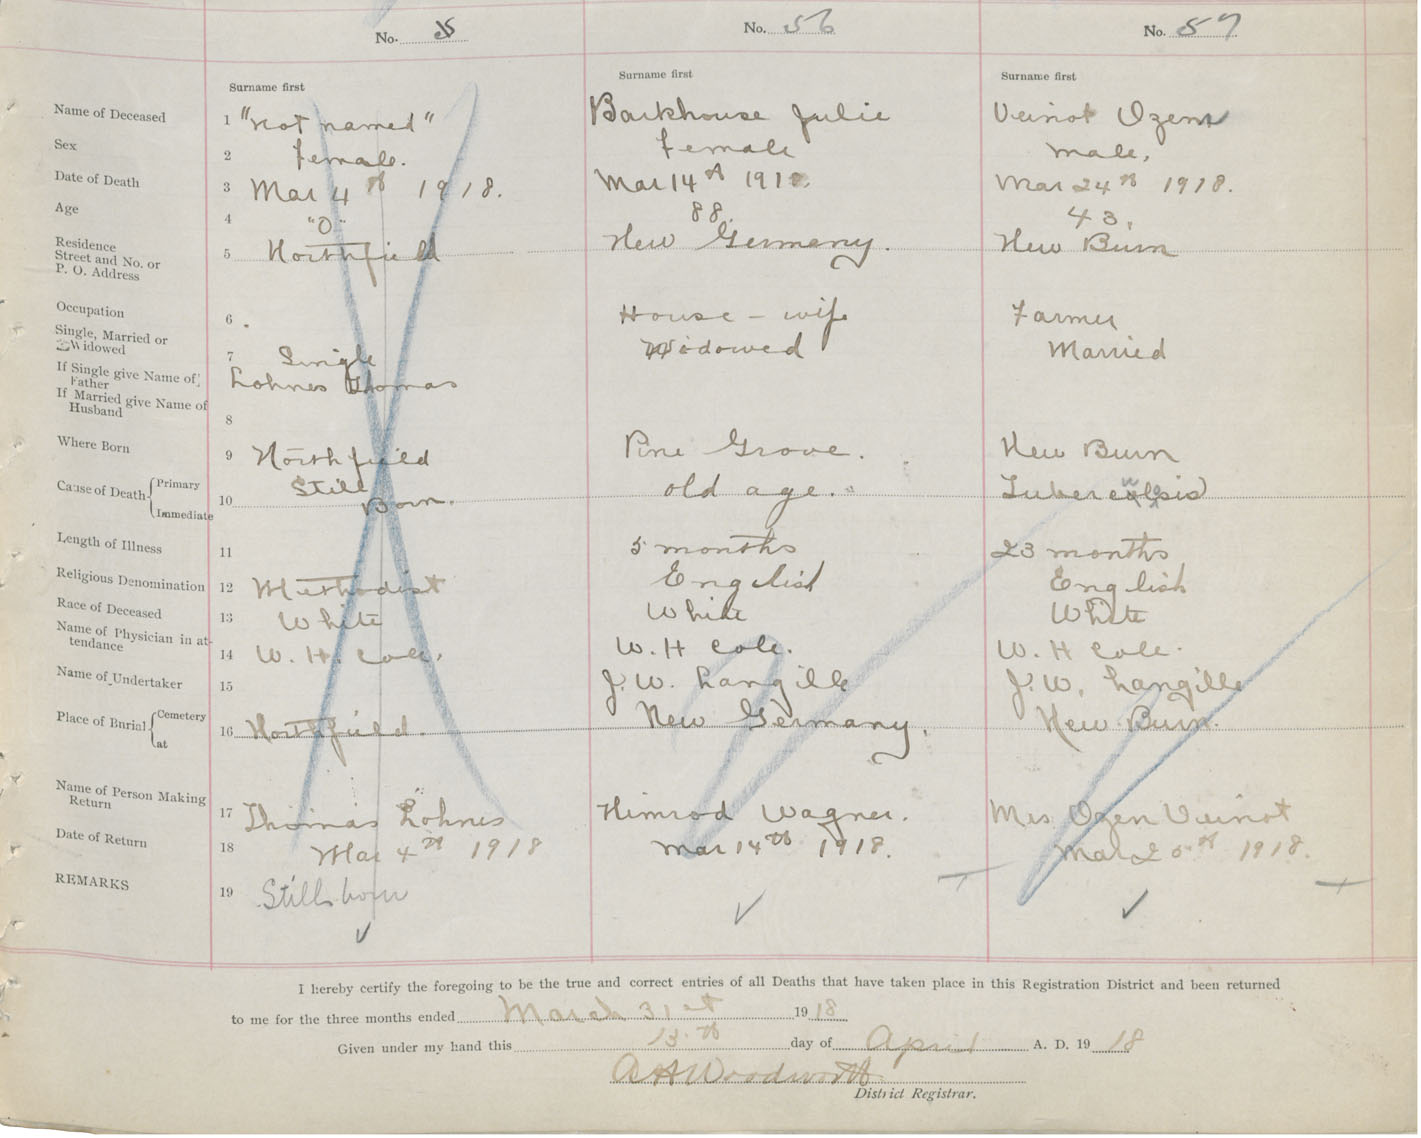 No. No. 56 No. 57
Surname first Surname first Surname first
Name of Deceased 1 "not named" Barkhouse Julie Veinot Ozem
Sex 2 female. Female male.
Date of Death 3 Mar 4th 1918. Mar 14th 1918. Mar 24th 1918.
Age 4 "0" 88. 43.
Residence
Street and No. or
P. O. Address 5 Northfield New Germany. New Burn
Occupation 6 House - wife Farmer
Single, Married or
Widowed 7 Single Widowed Married
If Single give Name of
Father Lohnes Thomas
If Married give Name of
Husband 8
Where Born 9 Northfield Pine Grove. New Burn
Cause of Death Primary Still old age.
Immediate 10 Born.
Length of Illness 11 5 months 23 months
Religious Denomination 12 Methodist English English
Race of Deceased 13 White White White
Name of Physician in at-
tendance 14 W. H. Cole. W. H Cole. W. H Cole.
Name of Undertaker 15 J. W. Langille J. W. Langille
Place of Burial Cemetery
at 16 Northfield. New Germany. New Burn.
Name of Person Making
Return 17 Thomas Lohnes Himrod Wagner. Mrs Ozen Veinot
Date of Return 18 Mar 4th 1918 Mar 14th 1918. Mar 1918.
REMARKS 19 Stillborn
I hereby certify the foregoing to be the true and correct entries of all Deaths that have taken place in this Registration District and been returned
to me for the three months ended March 31st 1918
Given under my hand this day of April A. D. 1918
A H Woodworth
District Registrar.